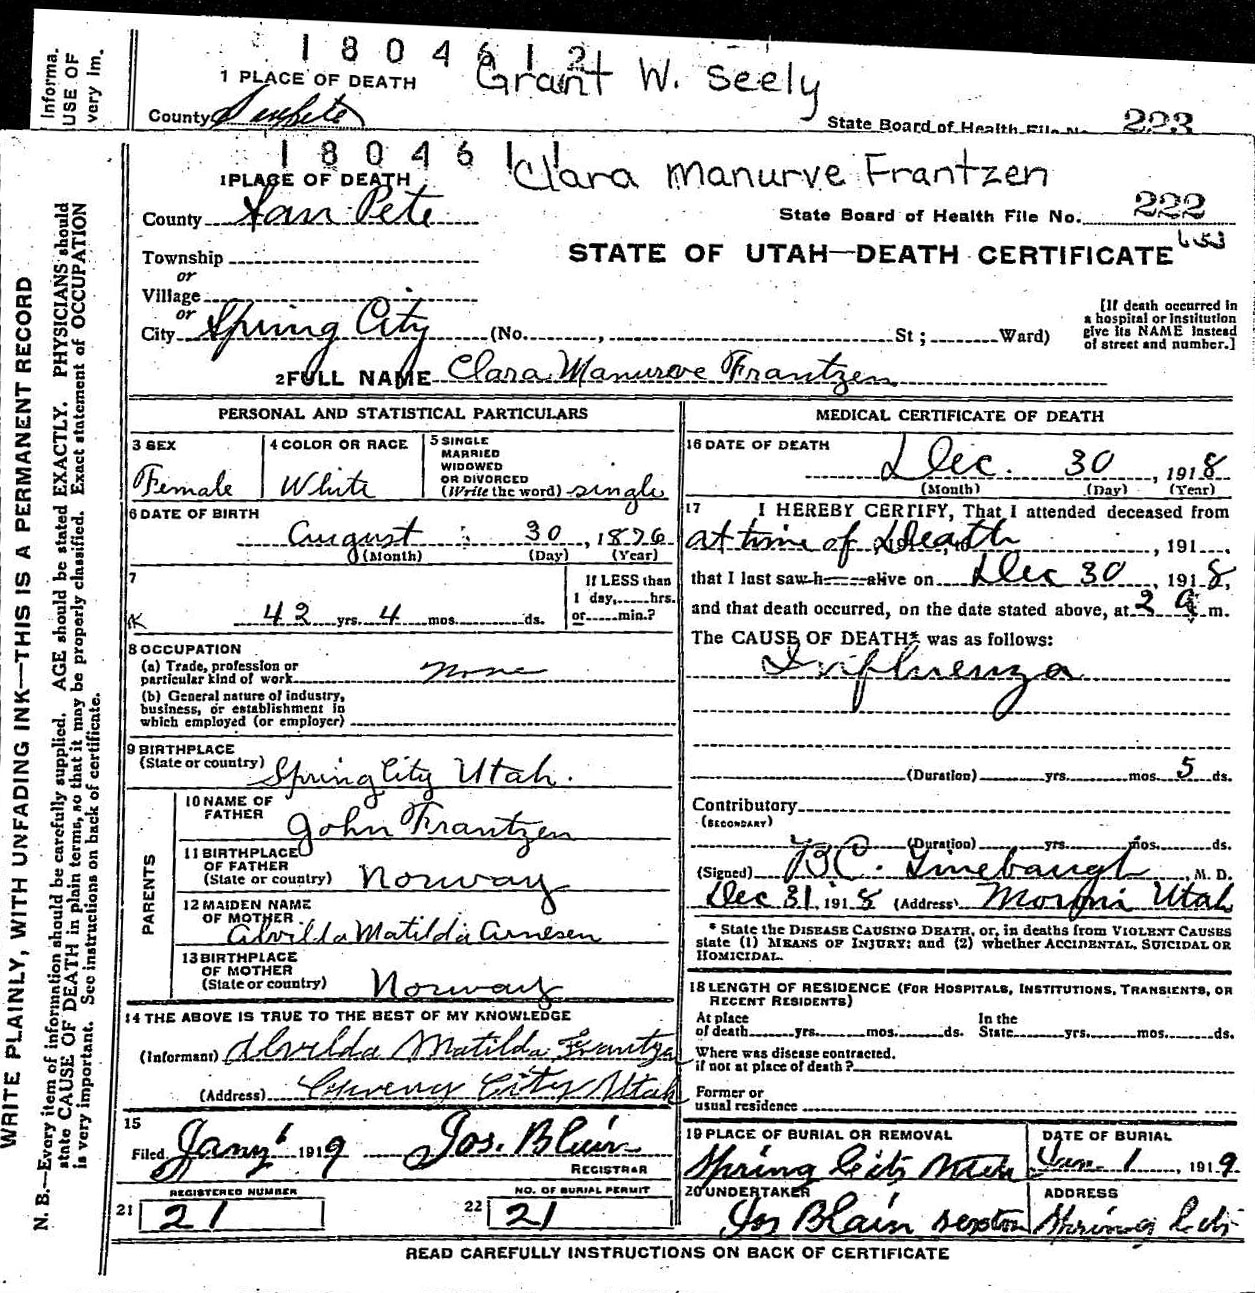 1 8 0 4 6 1 2
1 PLACE OF DEATH Grant W. Seely
County Sanpete State Board of Health File No. 223
Informa.
USE OF
very im.
1 8 0 4 6 1 1
1 PLACE OF DEATH Clara Manurve Frantzen
County San Pete State Board of Health File No. 222
653
Township STATE OF UTAH—DEATH CERTIFICATE
or
Village
or
City Spring City (No. , St ; Ward)
[If death occurred in
a hospital or institution
give its NAME instead
of street and number.]
2 FULL NAME Clara Manureve Frantzen
PERSONAL AND STATISTICAL PARTICULARS
3 SEX Female
4 COLOR OR RACE White
5 SINGLE
MARRIED
WIDOWED
OR DIVORCED
(Write the word) single
6 DATE OF BIRTH
August 30, 1876
(Month) (Day) (Year)
7
42 yrs. 4 mos. ds.
If LESS than
1 day, hrs.
or min.?
8 OCCUPATION
(a) Trade, profession or
particular kind of work none
(b) General nature of industry,
business, or establishment in
which employed (or employer)
9 BIRTHPLACE
(State or country) Spring City Utah.
PARENTS
10 NAME OF
FATHER John Frantzen
11 BIRTHPLACE
OF FATHER
(State or country) Norway
12 MAIDEN NAME
OF MOTHER Alvilda Matilda Arnesen
13 BIRTHPLACE
OF MOTHER
(State or country) Norway
14 THE ABOVE IS TRUE TO THE BEST OF MY KNOWLEDGE
(Informant) Alvilda Matilda Frantzen
(Address) City Utah
15
Filed Jany 6 1919 Jos. Blain
REGISTRAR
REGISTERED NUMBER
21 21
NO. OF BURIAL PERMIT
22 21
MEDICAL CERTIFICATE OF DEATH
16 DATE OF DEATH
Dec. 30, 1918
(Month) (Day) (Year)
17 I HEREBY CERTIFY, That I attended deceased from
at time of Death , 191
that I last saw h alive on Dec 30, 1918,
and that death occurred, on the date stated above, at 2 a m.
The CAUSE OF DEATH* was as follows:
Influenza
(Duration) yrs. mos. 5 ds.
Contributory
(SECONDARY)
(Duration) yrs. mos. ds.
(Signed) B.C. Linebaugh, M. D.
Dec 31, 1918 (Address) Moroni Utah
* State the DISEASE CAUSING DEATH, or, in deaths from VIOLENT CAUSES
state (1) MEANS OF INJURY; and (2) whether ACCIDENTAL, SUICIDAL OR
HOMICIDAL.
18 LENGTH OF RESIDENCE (FOR HOSPITALS, INSTITUTIONS, TRANSIENTS, OR
RECENT RESIDENTS)
At place
of death yrs. mos. ds.
In the
State yrs. mos. ds.
Where was disease contracted.
if not at place of death?
Former or
usual residence
19 PLACE OF BURIAL OR REMOVAL
Spring City Utah
DATE OF BURIAL
Jan. 1, 1919
20 UNDERTAKER
Jos Blain sexton
ADDRESS
Spring City
READ CAREFULLY INSTRUCTIONS ON BACK OF CERTIFICATE
WRITE PLAINLY, WITH UNFADING INK—THIS IS A PERMANENT RECORD
N. B.—Every item of information should be carefully supplied. AGE should be stated EXACTLY. PHYSICIANS should
state CAUSE OF DEATH in plain terms, so that it may be properly classified. Exact statement of OCCUPATION
is very important. See instructions on back of certificate.